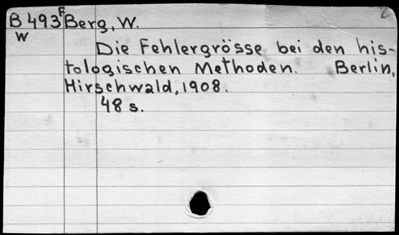 B 493F Berg, W.
W
Die Fehlergrösse bei den his-
tologischen Methoden. Berlin,
Hirschwald, 1908.
48 s.